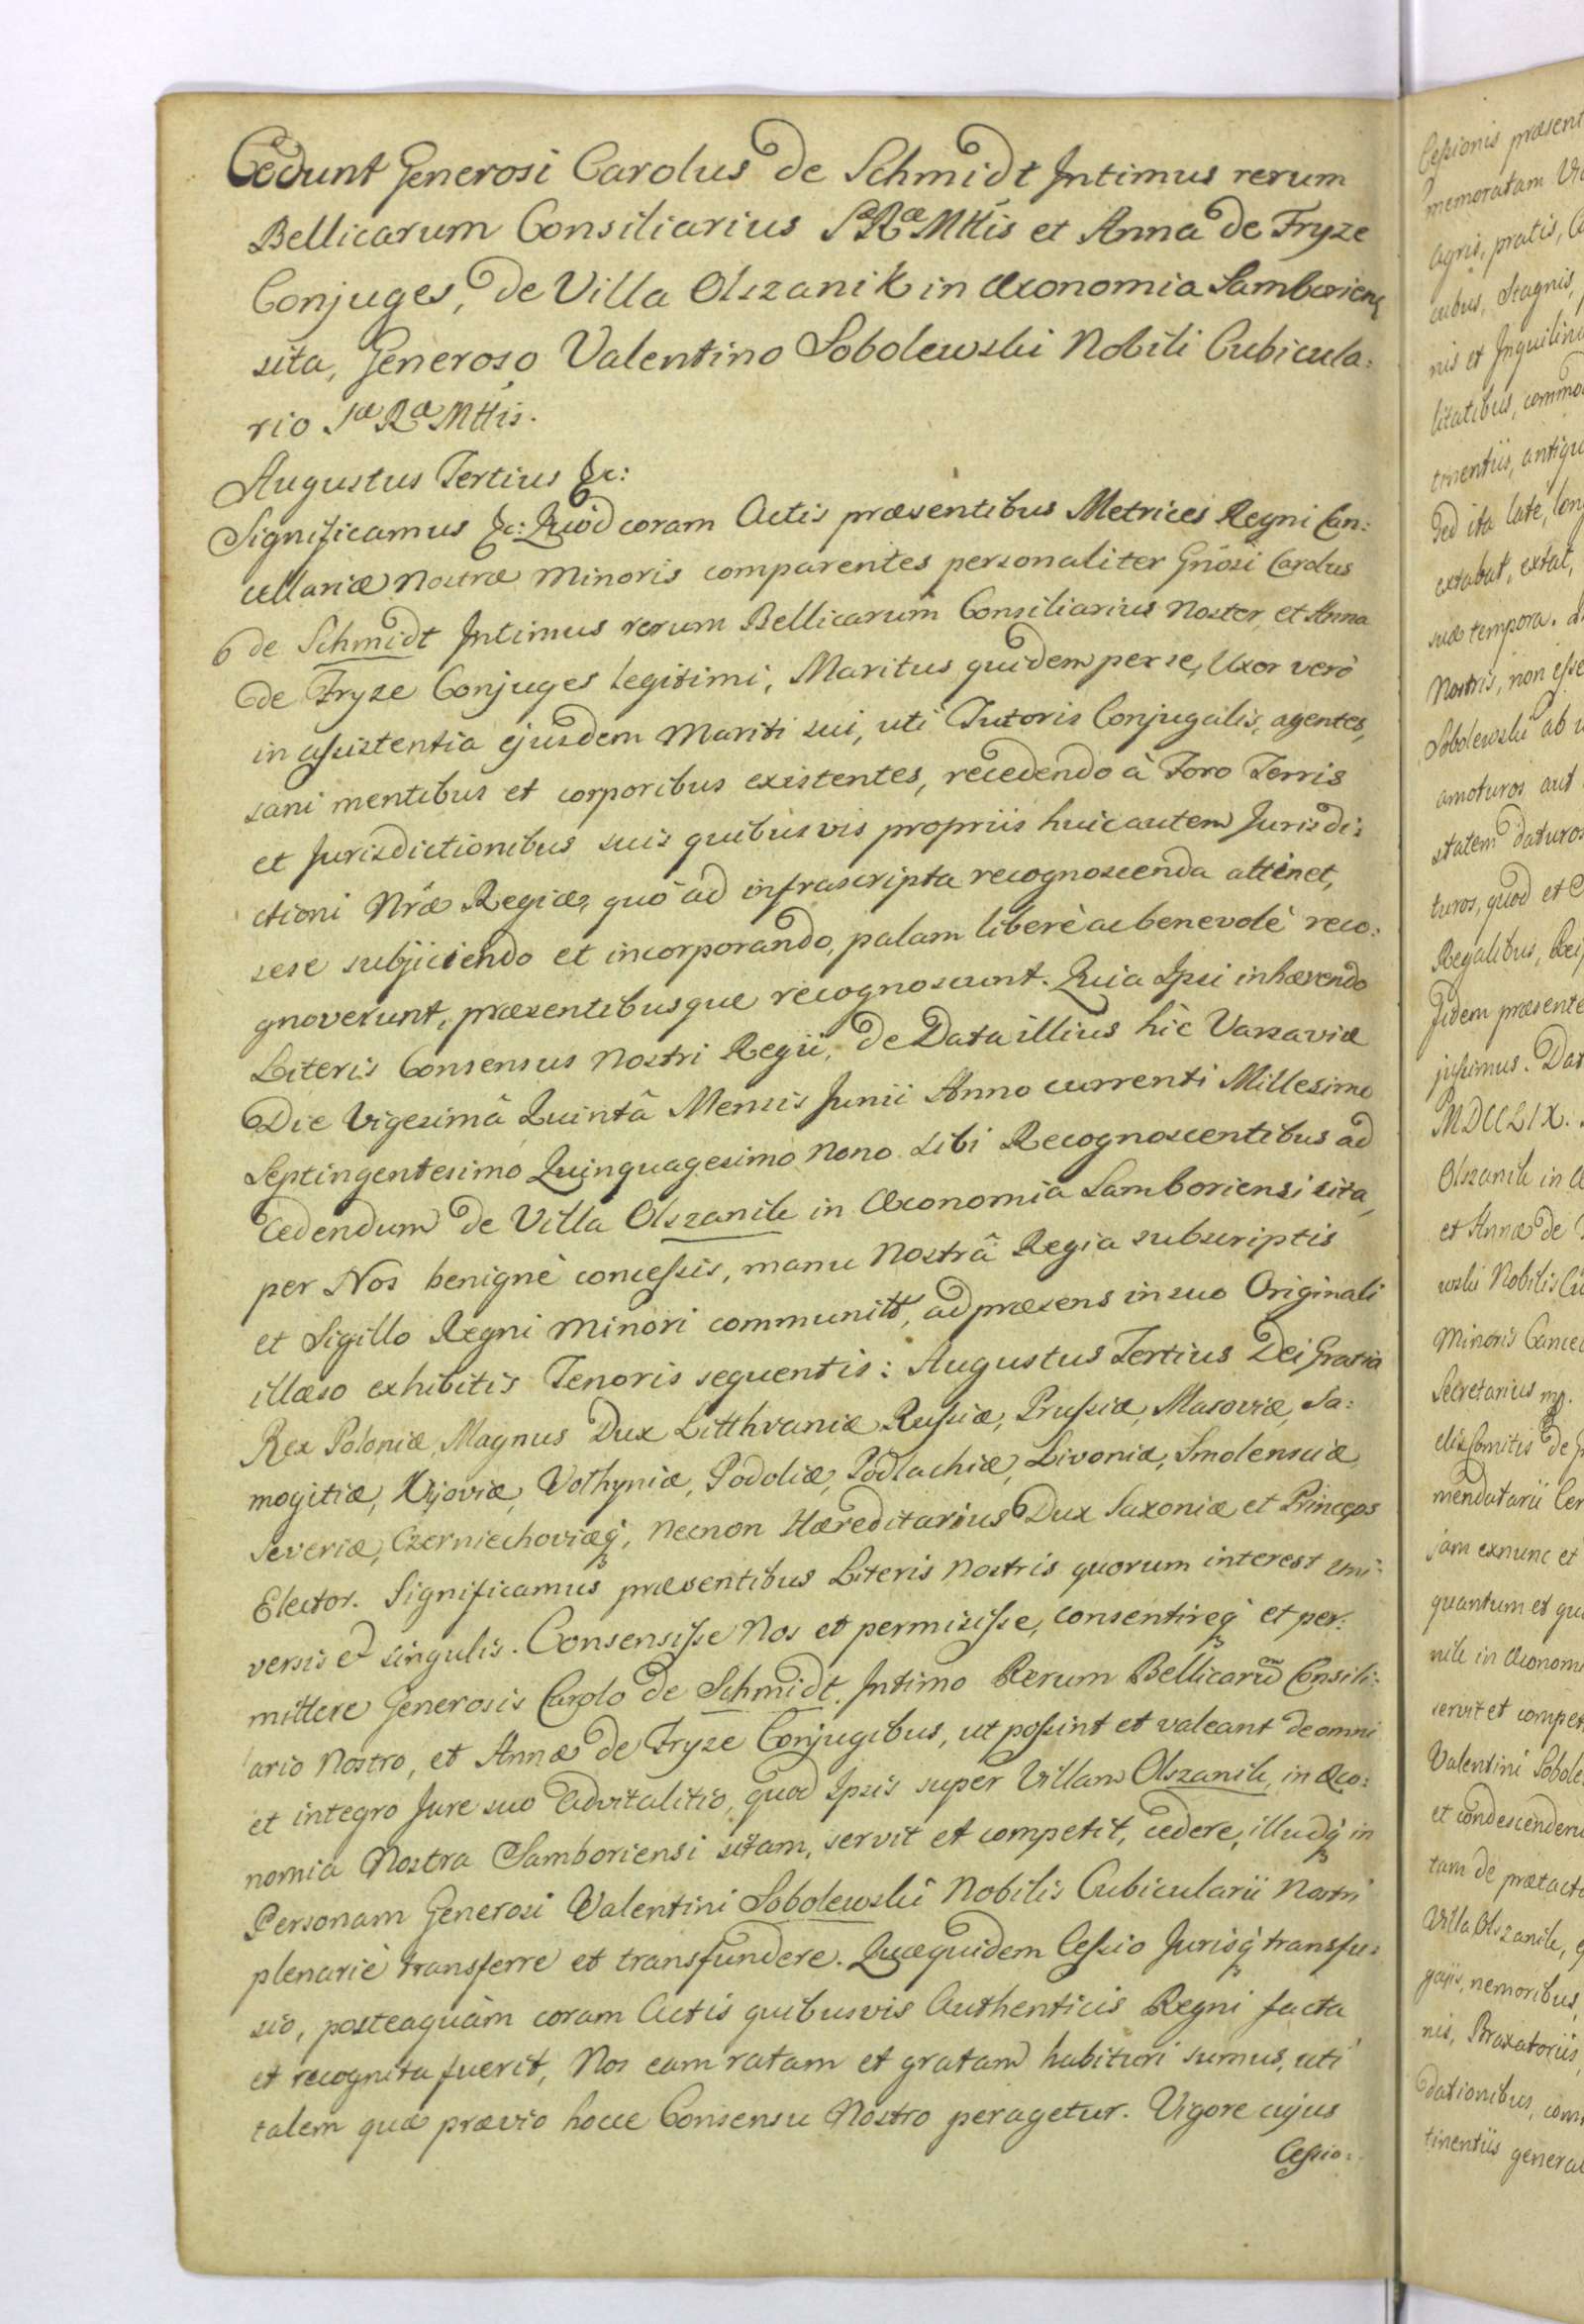 Cedunt Generosi Carolus de Schmidt Intimus rerum
Bellicarum Consiliarius Sæ Ræ Mttis et Anna de Fryze
Conjuges, de Villa Olszanik in Œconomia Samboriens
sita, Generoso Valentino Sobolewski Nobili Cubicula:
rio Sæ Ræ Mttis.
Augustus Tertius &c:
Significamus &c: Quòd coram Actis præsentibus Metrices Regni Can:
cellariæ Nostræ Minoris comparentes personaliter Gnosi Carolus
de Schmidt Intimus rerum Bellicarum Consiliarius Noster, et Anna
de Fryze Conjuges legitimi, Maritus quidem per se, Uxor verò
in assistentia ejusdem Mariti sui, uti Tutoris Conjugalis, agentes,
sani mentibus et corporibus existentes, recedendo à Foro Terris
et Jurisdictionibus suis quibusvis propriis huic autem Jurisdi:
ctioni Nræ Regiæ, quò ad infrascripta recognoscenda attinet,
sese subjiciendo et incorporando, palam liberè ac benevolè reco:
gnoverunt, præsentibusque recognoscunt. Quia Ipsi inhærendo
Literis Consensus Nostri Regii, de Data illius hîc Varsaviæ
Die Vigesimâ Quintâ Mensis Junii Anno currenti Millesimo
Septingentesimo Quinquagesimo Nono sibi Recognoscentibus ad
cedendum de Villa Olszanik in Œconomia Samboriensi sita,
per Nos benignè concessis, manu Nostrâ Regia subscriptis
et Sigillo Regni Minori communitt, ad præsens in suo Originali
illæso exhibitis Tenoris sequentis: Augustus Tertius Dei Gratia
Rex Poloniæ, Magnus Dux Litthvaniæ Russiæ, Prussiæ, Masoviæ, Sa:
mogitiæ, Kijoviæ, Volhyniæ, Podoliæ, Podlachiæ, Livoniæ, Smolensciæ
Severiæ, Czerniechoviæq, necnon Hæreditarius Dux Saxoniæ et Princeps
Elector. Significamus præsentibus Literis Nostris quorum interest uni:
versis et singulis. Consensisse Nos et permisisse, consentireq et per:
mittere Generosis Carolo de Schmidt Intimo Rerum Bellicarũ Consili:
ario Nostro, et Annæ de Fryze Conjugibus, ut possint et valeant de omni
et integro Jure suo Advitalitio, quod Ipsis super Villam Olszanik in Œco:
nomia Nostra Samboriensi sitam, servit et competit, cedere, illudq in
Personam Generosi Valentini Sobolewski Nobilis Cubicularii Nostri
plenariè transferre et transfundere. Quæquidem Cessio Jurisq transfu:
sio, posteaquàm coram Actis quibusvis Authenticis Regni facta
et recognita fuerit, Nos eam ratam et gratam habituri sumus, uti
talem quæ prævio hocce Consensu Nostro peragetur. Vigore cujus
Cessio:
Cessionis præsent
memoratam
agris, pratis,
Stagnis,
nis et Inquilin
litatibus, commo
tinentiis, antiqu
sed ita late, lon
extabat, extat,
suæ tempora.
Nostris, non esse
Sobolewski ab
amoturos aut
statem daturos
turos, quod et
Regalibus, Rei
Fidem præsente
jussimus. Dat
MDCCLIX.
Olszanik in Œ
et Annæ de
wski Nobilis Cu
Minoris Cancel
Secretarius mp.
Comitis de
mendatarii
jam exnunc et
quantum et qu
nik in Œconomi
servit et compet
Valentini Sobole
et condescenden
tam de prætact
Villa Olszanik,
gajis, nemoribus,
nis, Braxatoriis,
dationibus, com
tinentiis general